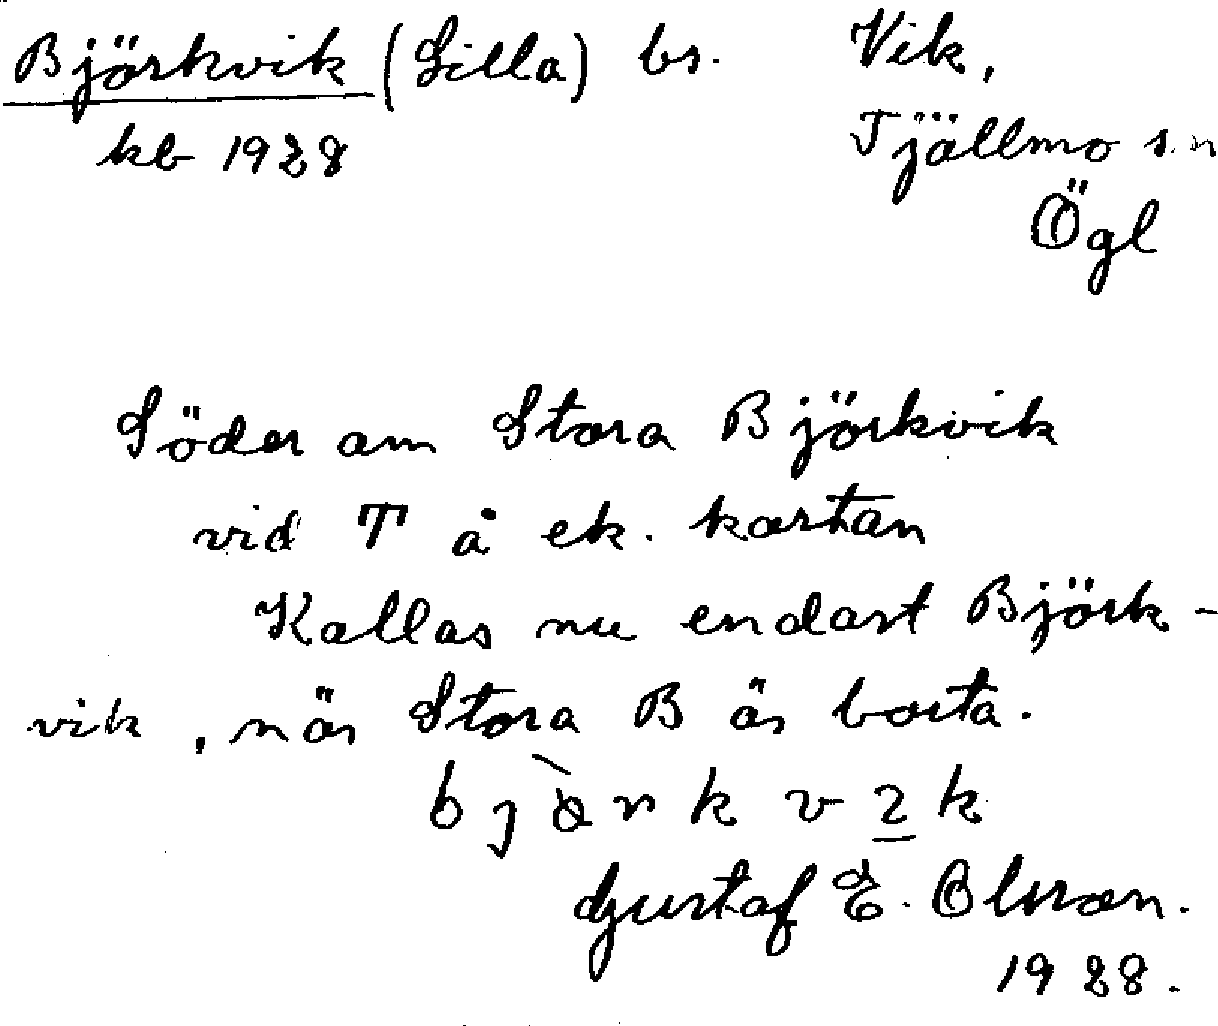 Björkvik (Lilla) bs. Vik,
kb 1928 Tjällmo sn
Ögl
Söder om Stora Björkvik
vid T å ek. kartan
Kallas nu endast Björk-
vik, när Stora B är borta.
Gustaf E. Olsson.
1928.